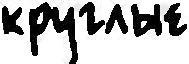 круглые